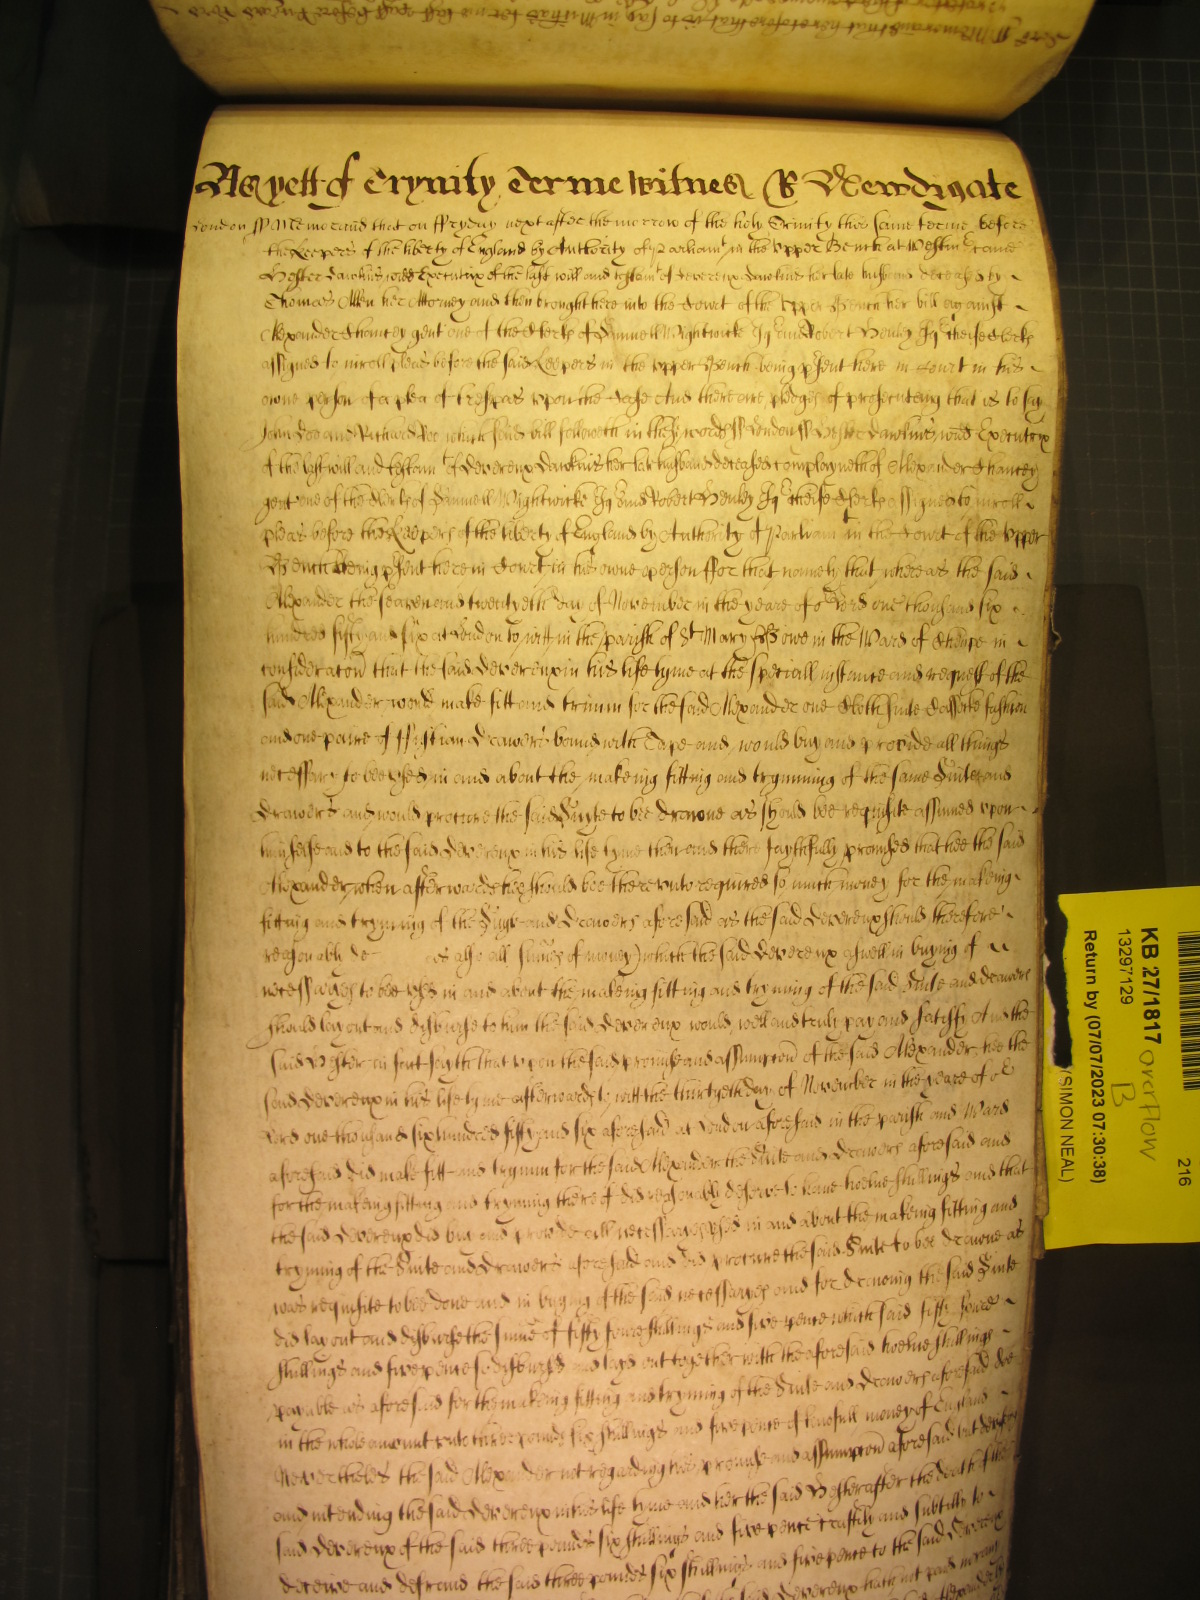 As yett of Trynity Terme Witnes R Newdigate
London ss Memorand that on ffryday next after the morrow of the holy Trinity this same terme before
the Keepers of the liberty of England by Authority of Parliamt in the Upper Bench at Westmr came
Hester Dawkins widd Executrix of the last will and testamt of Devereux Dawkins her late husband deceased by
Thomas Allen her Attorney and then brought here into the Court of the Upper Bench her bill against
Alexander Chancey gent one of the Clerks of Samuell Wightwicke Esqr and Robert Henley Esqr cheife Clerks
assigned to inroll pleas before the said Keepers in the upper Bench being psent here in Court in his
owne person of a plea of trespas upon the Case And there are pledges of prosecuting that is to say
John Doo and Richard Roe which said bill followeth in these words ss London ss Hester Dawkins widd Executrix
of the last will and testamt of Devereux Dawkins her late husband deceased complayneth of Alexander Chancey
gent one of the Clerks of Samuell Wightwicke Esqr and Robert Henley Esqr cheife Clerks assigned to inroll
pleas before the Keepers of the liberty of England by Authority of Parliamt in the Court of the Upper
Bench being psent here in Court in his owne person ffor that namely that whereas the said
Alexander the seaven and twentyeth day of November in the yeare of or Lord one thousand six
hundred fifty and six at London to witt in the parish of St Mary Bowe in the Ward of Cheape in
consideracon that the said Devereux in his life tyme at the speciall instance and request of the
said Alexander would make fitt and trimm for the said Alexander one Cloth suite Cassocke fashion
and one paire of ffustian drawers bound with Tape and would buy and provide all things
necessary to bee used in and about the makeing fitting and trymming of the same Suite and
drawers and would procure the said Suyte to bee drawne as should bee requisite assumed upon
himselfe and to the said Devereux in his life tyme then and there faythfully promised that hee the said
Alexander when afterwards hee should bee thereunto required so much money for the makeing
fitting and tryming of the Suyte and drawers aforesaid as the said Devereux should therefore
reasonably de as also all summes of money which the said Devereux aswell in buying of
necessaryes to bee used in and about the makeing fitting and tryming of the said Suite and drawers
should lay out and disburse to him the said Devereux would well and truly pay and satisfy And the
said Hester in fact sayth that upon the said promise and assumption of the said Alexander hee the
said Devereux in his life tyme afterwards to witt the thirtyeth day of November in the yeare of or
Lord one thousand six hundred fifty and six aforesaid at London aforesaid in the parish and Ward
aforesaid did make fitt and trymm for the said Alexander the Suite and drawers aforesaid and
for the makeing fitting and tryming thereof did reasonably deserve to have twelve shillings and that
the said Devereux did buy and provide all necessaryes used in and about the makeing fitting and
tryming of the Suite and drawers aforesaid and did procure the said Suite to bee drawne as
was requisite to bee done and in buying of the said necessaryes and for drawing the said Suite
did lay out and disburse the summe of fifty foure shillings and five pence which said fifty foure
shillings and five pence so disbursed and layd out together with the aforesaid twelve shillings
payable as aforesaid for the makeing fitting and tryming of the Suite and drawers aforesaid doe
in the whole amount unto three pounds six shillings and five pence of lawfull money of England
Neverthelesse the said Alexander not regarding his promise and assumption aforesaid but
and intending the said Devereux in his life tyme and her the said Hester after the death of the
said Devereux of the said three pounds six shillings and five pence craftily and subtilly to
deceive and defraud the said three pounds six shillings and five pence to the said Devereux
Devereux hath not paid
KB 27/1817 overflow
B
13297129
Return by (07/07/2023 07:30:38)
(SIMON NEAL)
216